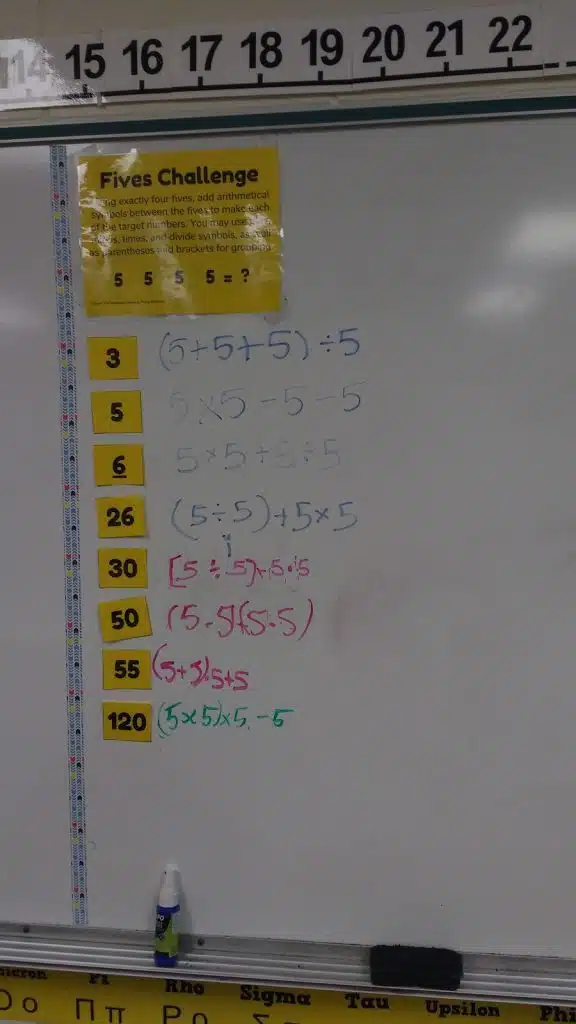 14 15 16 17 18 19 20 21 22
Fives Challenge
exactly four fives, add arithmetical
symbols between the fives to make each
of the target numbers. You may use
times, and divide symbols, as well
as parentheses and brackets for grouping.
5 5 5 5 = ?
3 (5+5+5)÷5
5 5×5-5-5
6 5×5+5÷5
26 (5÷5)+5×5
30
50
55 (5+5)5+5
120 (5×5)×5-5
Pi Rho Sigma Tau Upsilon Phi
Ο ο Π π Ρ ρ Σ